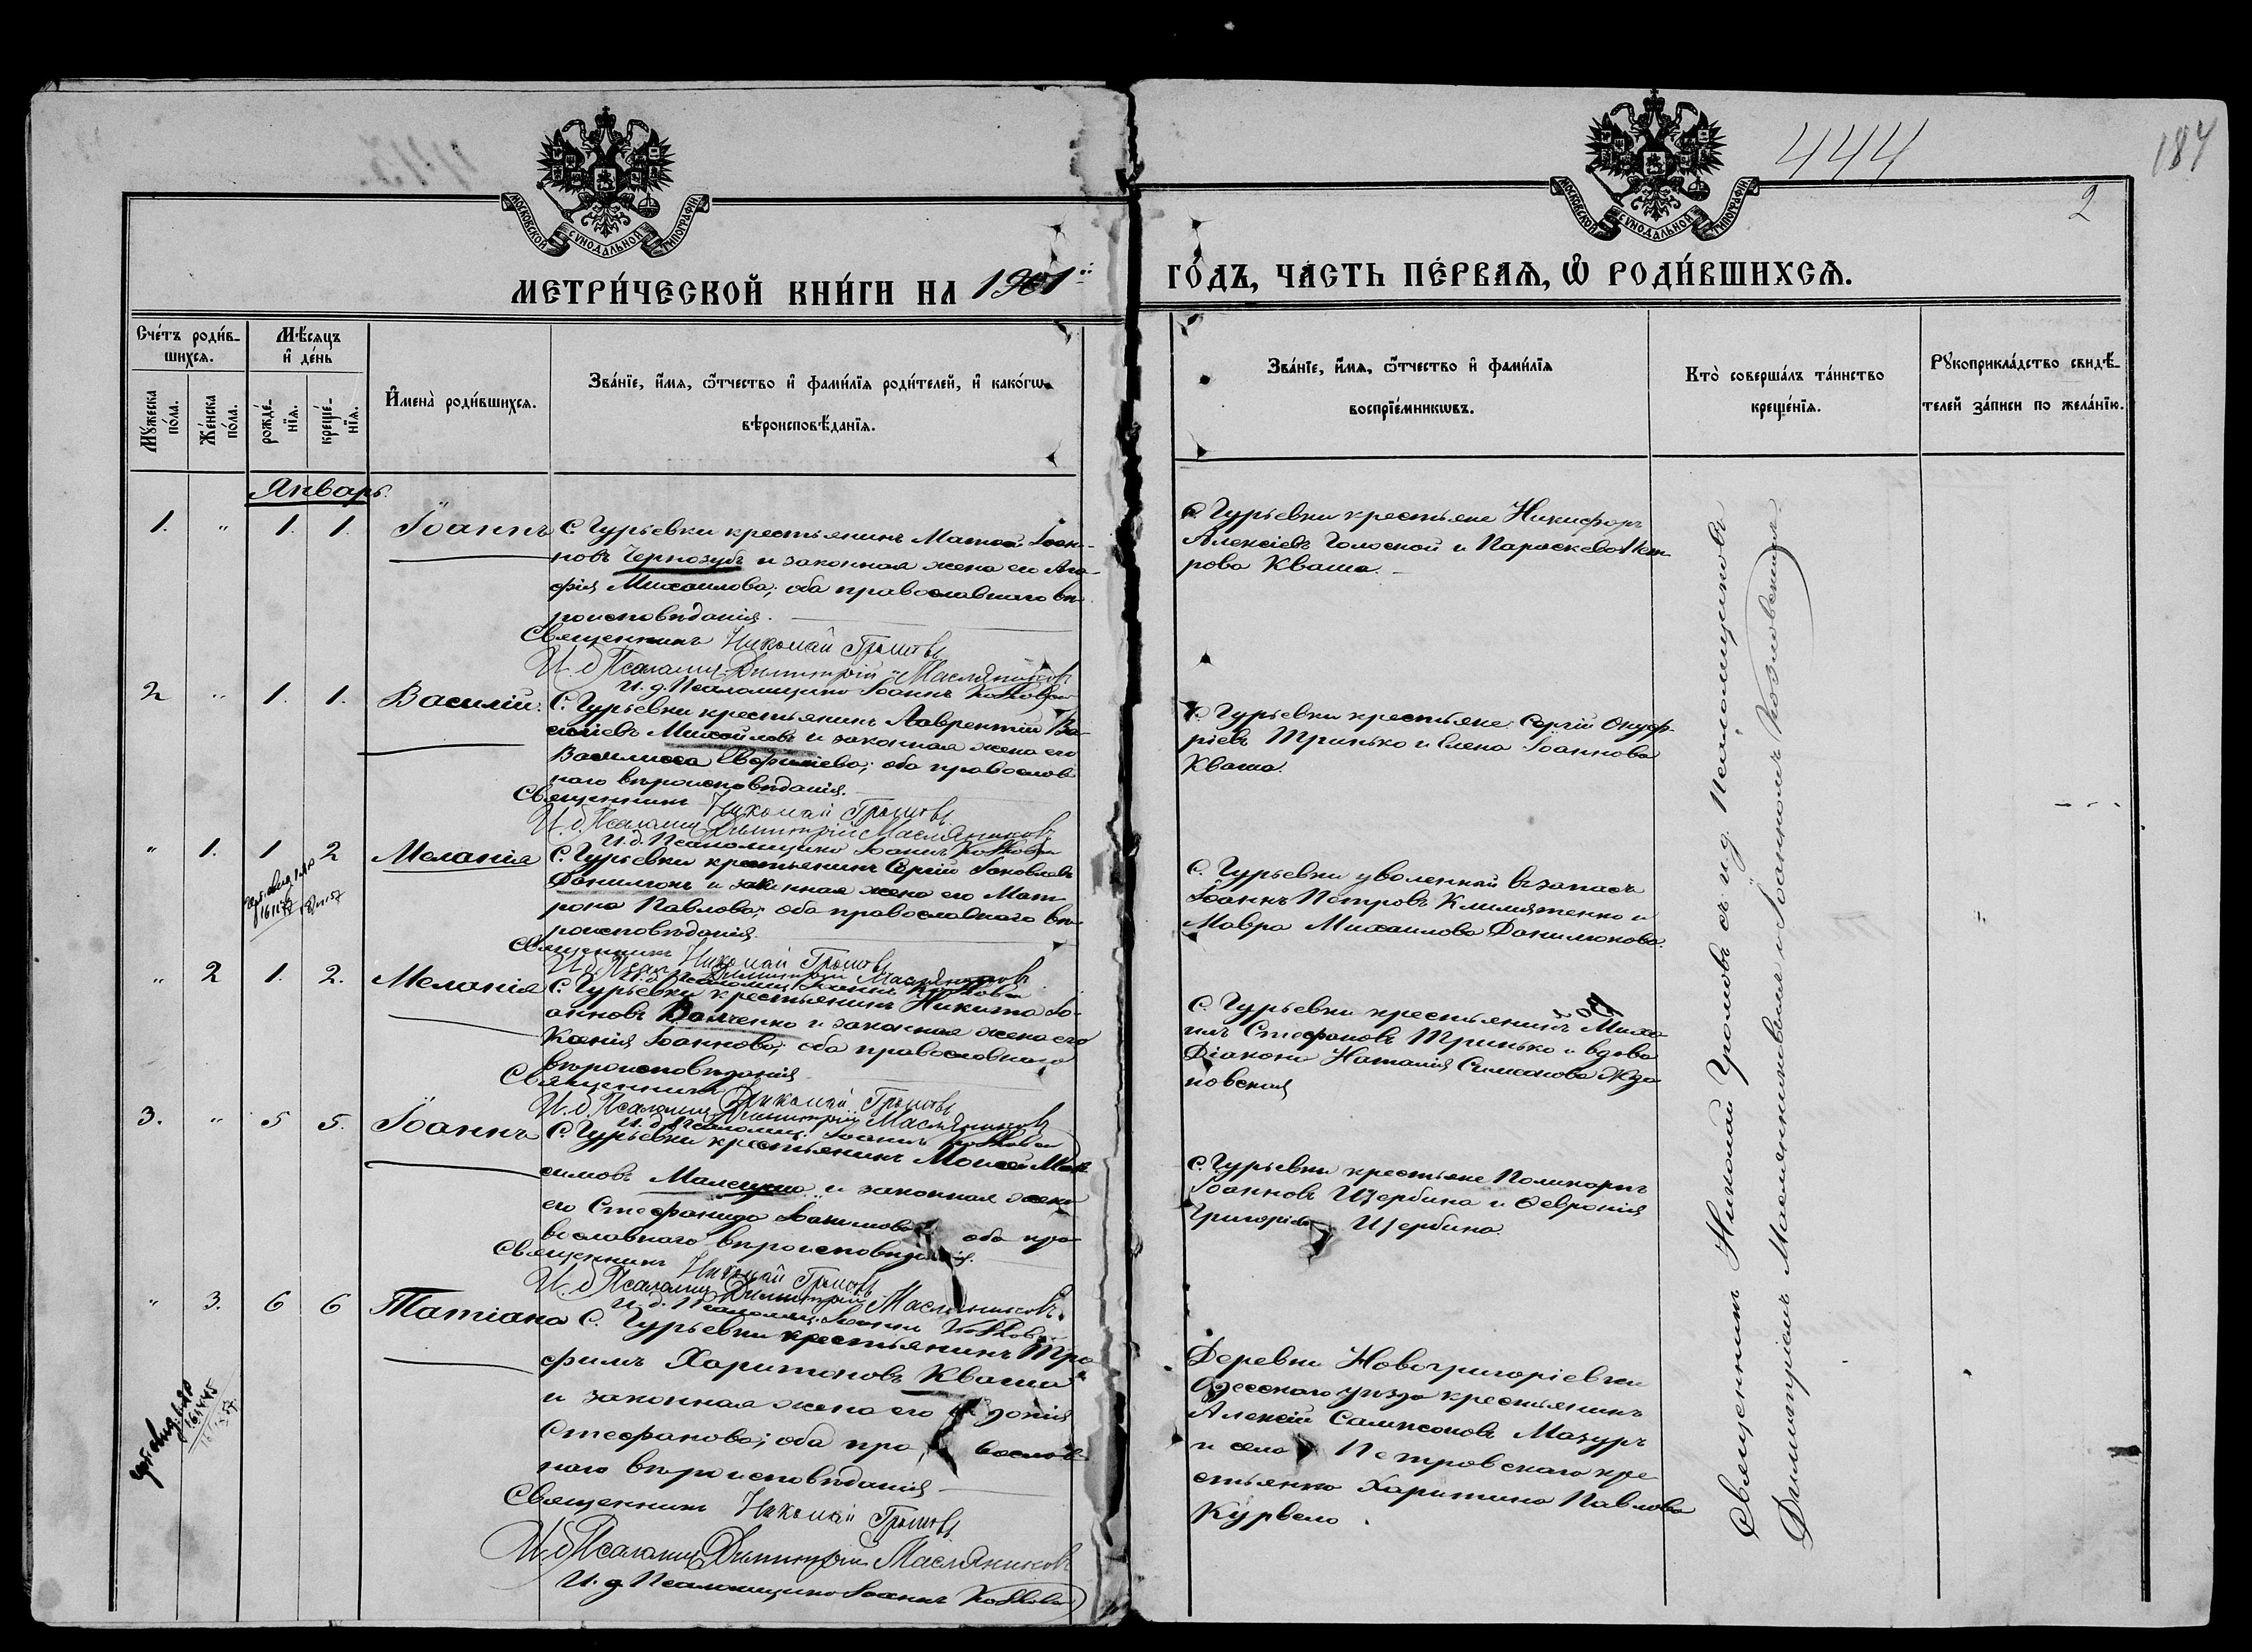 444
184
2
МОСКОВСКОЙ СУНОДАЛЬНОЙ ТИПОГРАФІИ
МОСКОВСКОЙ СУНОДАЛЬНОЙ ТИПОГРАФІИ
МЕТРИ́ЧЕСКОЙ КНИ́ГИ НА 1901й
ГО́ДЪ, ЧА́СТЬ ПЕ́РВАѦ, Ѽ РОДИ́ВШИХСѦ.
Сче́тъ роди́в-
шихсѧ.
Мѣ́сѧцъ
и҆ де́нь
Мꙋ́жеска
по́ла.
Же́нска
по́ла.
рожде́-
нїѧ.
креще́-
нїѧ.
И҆мена̀ роди́вшихсѧ.
Зва́нїе, и҆́мѧ, ѻ҆́тчество и҆ фами́лїѧ роди́телей, и҆ како́гѡ
вѣроисповѣ́данїѧ.
Зва́нїе, и҆́мѧ, ѻ҆́тчество и҆ фами́лїѧ
воспрїе́мникѡвъ.
Кто̀ соверша́лъ та́инство
креще́нїѧ.
Рꙋкоприкла́дство свидѣ́-
телей за́писи по жела́нїю.
Январь.
1. " 1. 1. Іоаннъ
С. Гурьевки крестьянинъ Матѳей Іоан-
новъ Чернозубъ и законная жена его Ага-
фія Михаилова; оба православнаго вѣ-
роисповѣданія.
Священникъ Николай Громовъ
И. д. Псаломщ. Димитрій Масляниковъ
И. д. Псаломщика Іоаннъ
С. Гурьевки крестьяне Никифоръ
Алексіевъ Голосной и Параскева Пет-
рова Кваша.
2 " 1. 1. Василій.
С. Гурьевки крестьянинъ Лаврентій Ва-
силіевъ Михайловъ и законная жена его
Василисса Евфиміева; оба православ-
наго вѣроисповѣданія.
Священникъ Николай Громовъ
И. д. Псаломщ Димитрій Масляниковъ
И. д. Псаломщика Іоаннъ
С. Гурьевки крестьяне Сергій Онуф-
ріевъ Тринько и Елена Іоаннова
Кваша.
" 1. 1 2 Меланія
С. Гурьевки крестьянинъ Сергій Іаковлевъ
Данилюкъ и законная жена его Мат-
рона Павлова; оба православнаго вѣ-
роисповѣданія.
Священникъ Николай Громовъ
И. д. Псал. Димитрій Масляниковъ
И. д. Псаломщ. Іоаннъ
С. Гурьевки уволенный въ запасъ
Іоаннъ Петровъ Климятенко и
Мавра Михаилова Данилюкова.
" 2 1. 2. Меланія
С. Гурьевки крестьянинъ Никита Іо-
анновъ Ванченко и законная жена его
Ксенія Іоаннова; оба православнаго
вѣроисповѣданія
Священникъ Николай Громовъ
И. д. Псаломщ Димитрій Масляниковъ
И. д. Псаломщ. Іоаннъ
С. Гурьевки крестьянинъ Миха-
илъ Стефановъ Тринько и вдова
Діакона Наталія Симеонова Жда-
новская
3. " 5 5. Іоаннъ
С. Гурьевки крестьянинъ Моисей Мак-
симовъ и законная жена
его Стефанида Іоакимова; оба пра-
вославнаго вѣроисповѣданія.
Священникъ Николай Громовъ
И. д. Псаломщ Димитрій Масляниковъ
И. д. Псаломщ. Іоаннъ
С. Гурьевки крестьяне Поликарпъ
Іоанновъ Щербина и Февронія
Григоріева Щербина.
" 3. 6 6 Татіана
С. Гурьевки крестьянинъ Тро-
фимъ Харитоновъ Кваша
и законная жена его
Стефанова; оба православ-
наго вѣроисповѣданія
Священникъ Николай Громовъ
И. д. Псаломщ Димитрій Масляниковъ
И. д. Псаломщика Іоаннъ
Деревни Новогригоріевки
Одесскаго уѣзда крестьянинъ
Алексій Сампсоновъ Мазуръ
и села Петровскаго кре-
стьянка Харитина Павлова
Курвело.
Священникъ Николай Громовъ съ и. д. Псаломщиковъ
Димитріемъ Масляниковымъ и Іоанномъ Козловскимъ.